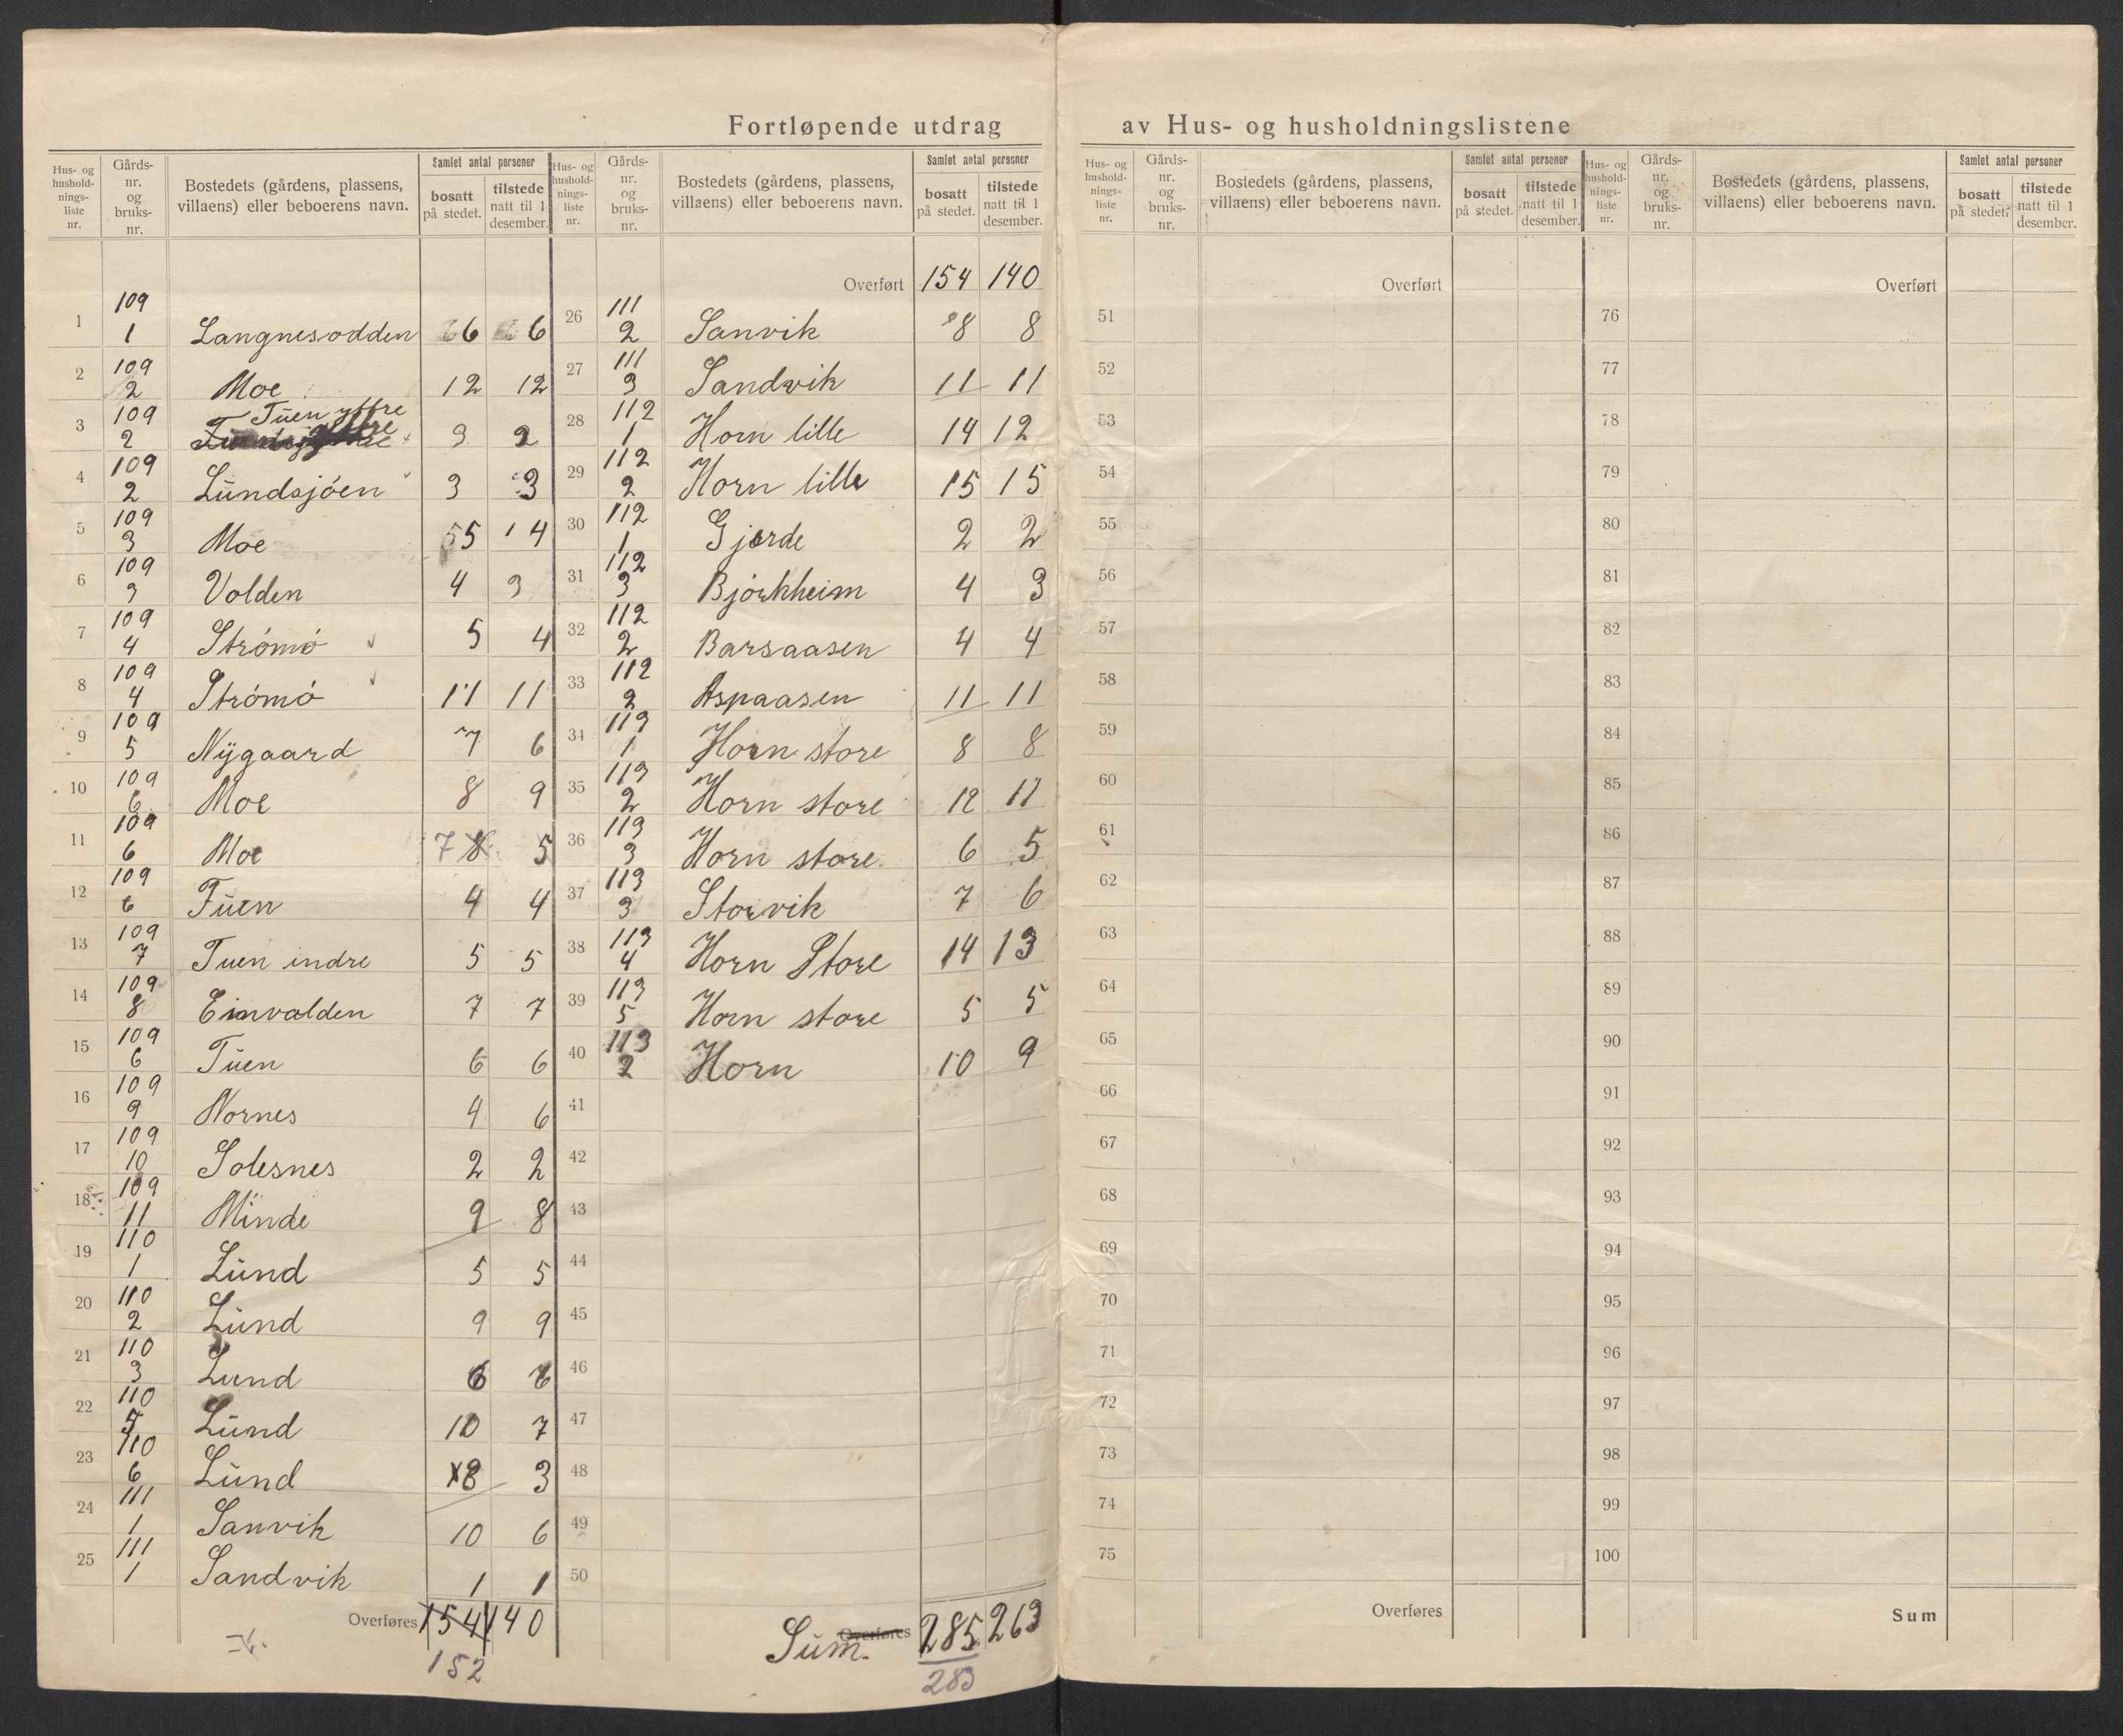 Fortløpende utdrag av Hus- og husholdningslistene
Hus- og hushold-nings-liste nr. | Gårds-nr. og bruks-nr. | Bostedets (gårdens, plassens, villaens) eller beboerens navn. | Samlet antal personer | bosatt på stedet. | tilstede natt til 1 desember.
1 | 109 1 | Langnesodden | 6 | 6
2 | 109 2 | Moe | 12 | 12
3 | 109 2 | Tuen yttre | 3 | 2
4 | 109 2 | Lundsjöen | 3 | 3
5 | 109 3 | Moe | 5 | 4
6 | 109 3 | Volden | 4 | 3
7 | 109 4 | Strómó | 5 | 4
8 | 109 4 | Strómó | 11 | 11
9 | 109 5 | Nygaard | 7 | 6
10 | 109 6 | Moe | 8 | 9
11 | 109 6 | Moe | 7 8 | 5
12 | 109 6 | Tuen | 4 | 4
13 | 109 7 | Tuen indre | 5 | 5
14 | 109 8 | Einvolden | 7 | 7
15 | 109 6 | Tuen | 6 | 6
16 | 109 9 | Nornes | 4 | 6
17 | 109 10 | Solesnes | 2 | 2
18 | 109 11 | Minde | 9 | 8
19 | 110 1 | Lund | 5 | 5
20 | 110 2 | Lund | 9 | 9
21 | 110 3 | Lund | 6 | 6
22 | 110 5 | Lund | 10 | 7
23 | 110 6 | Lund | 8 | 3
24 | 111 1 | Sanvik | 10 | 6
25 | 111 1 | Sandvik | 1 | 1
Overføres 154 140
152
Hus- og hushold-nings-liste nr. | Gårds-nr. og bruks-nr. | Bostedets (gårdens, plassens, villaens) eller beboerens navn. | Samlet antal personer | bosatt på stedet. | tilstede natt til 1 desember.
Overført 154 140
26 | 111 2 | Sanvik | 8 | 8
27 | 111 3 | Sandvik | 11 | 11
28 | 112 1 | Horn lille | 14 | 12
29 | 112 2 | Horn lille | 15 | 15
30 | 112 1 | Gjerde | 2 | 2
31 | 112 3 | Bjórkheim | 4 | 3
32 | 112 2 | Barsaasen | 4 | 4
33 | 112 2 | Aspaasen | 11 | 11
34 | 113 1 | Horn store | 8 | 8
35 | 113 2 | Horn store | 12 | 11
36 | 113 3 | Horn store | 6 | 5
37 | 113 3 | Storvik | 7 | 6
38 | 113 4 | Horn Store | 14 | 13
39 | 113 5 | Horn store | 5 | 5
40 | 113 2 | Horn | 10 | 9
41
42
43
44
45
46
47
48
49
50
Overføres
Sum. 285 263
283
Hus- og hushold-nings-liste nr. | Gårds-nr. og bruks-nr. | Bostedets (gårdens, plassens, villaens) eller beboerens navn. | Samlet antal personer | bosatt på stedet. | tilstede natt til 1 desember.
Overført
51
52
53
54
55
56
57
58
59
60
61
62
63
64
65
66
67
68
69
70
71
72
73
74
75
Overføres
Hus- og hushold-nings-liste nr. | Gårds-nr. og bruks-nr. | Bostedets (gårdens, plassens, villaens) eller beboerens navn. | Samlet antal personer | bosatt på stedet. | tilstede natt til 1 desember.
Overført
76
77
78
79
80
81
82
83
84
85
86
87
88
89
90
91
92
93
94
95
96
97
98
99
100
Sum